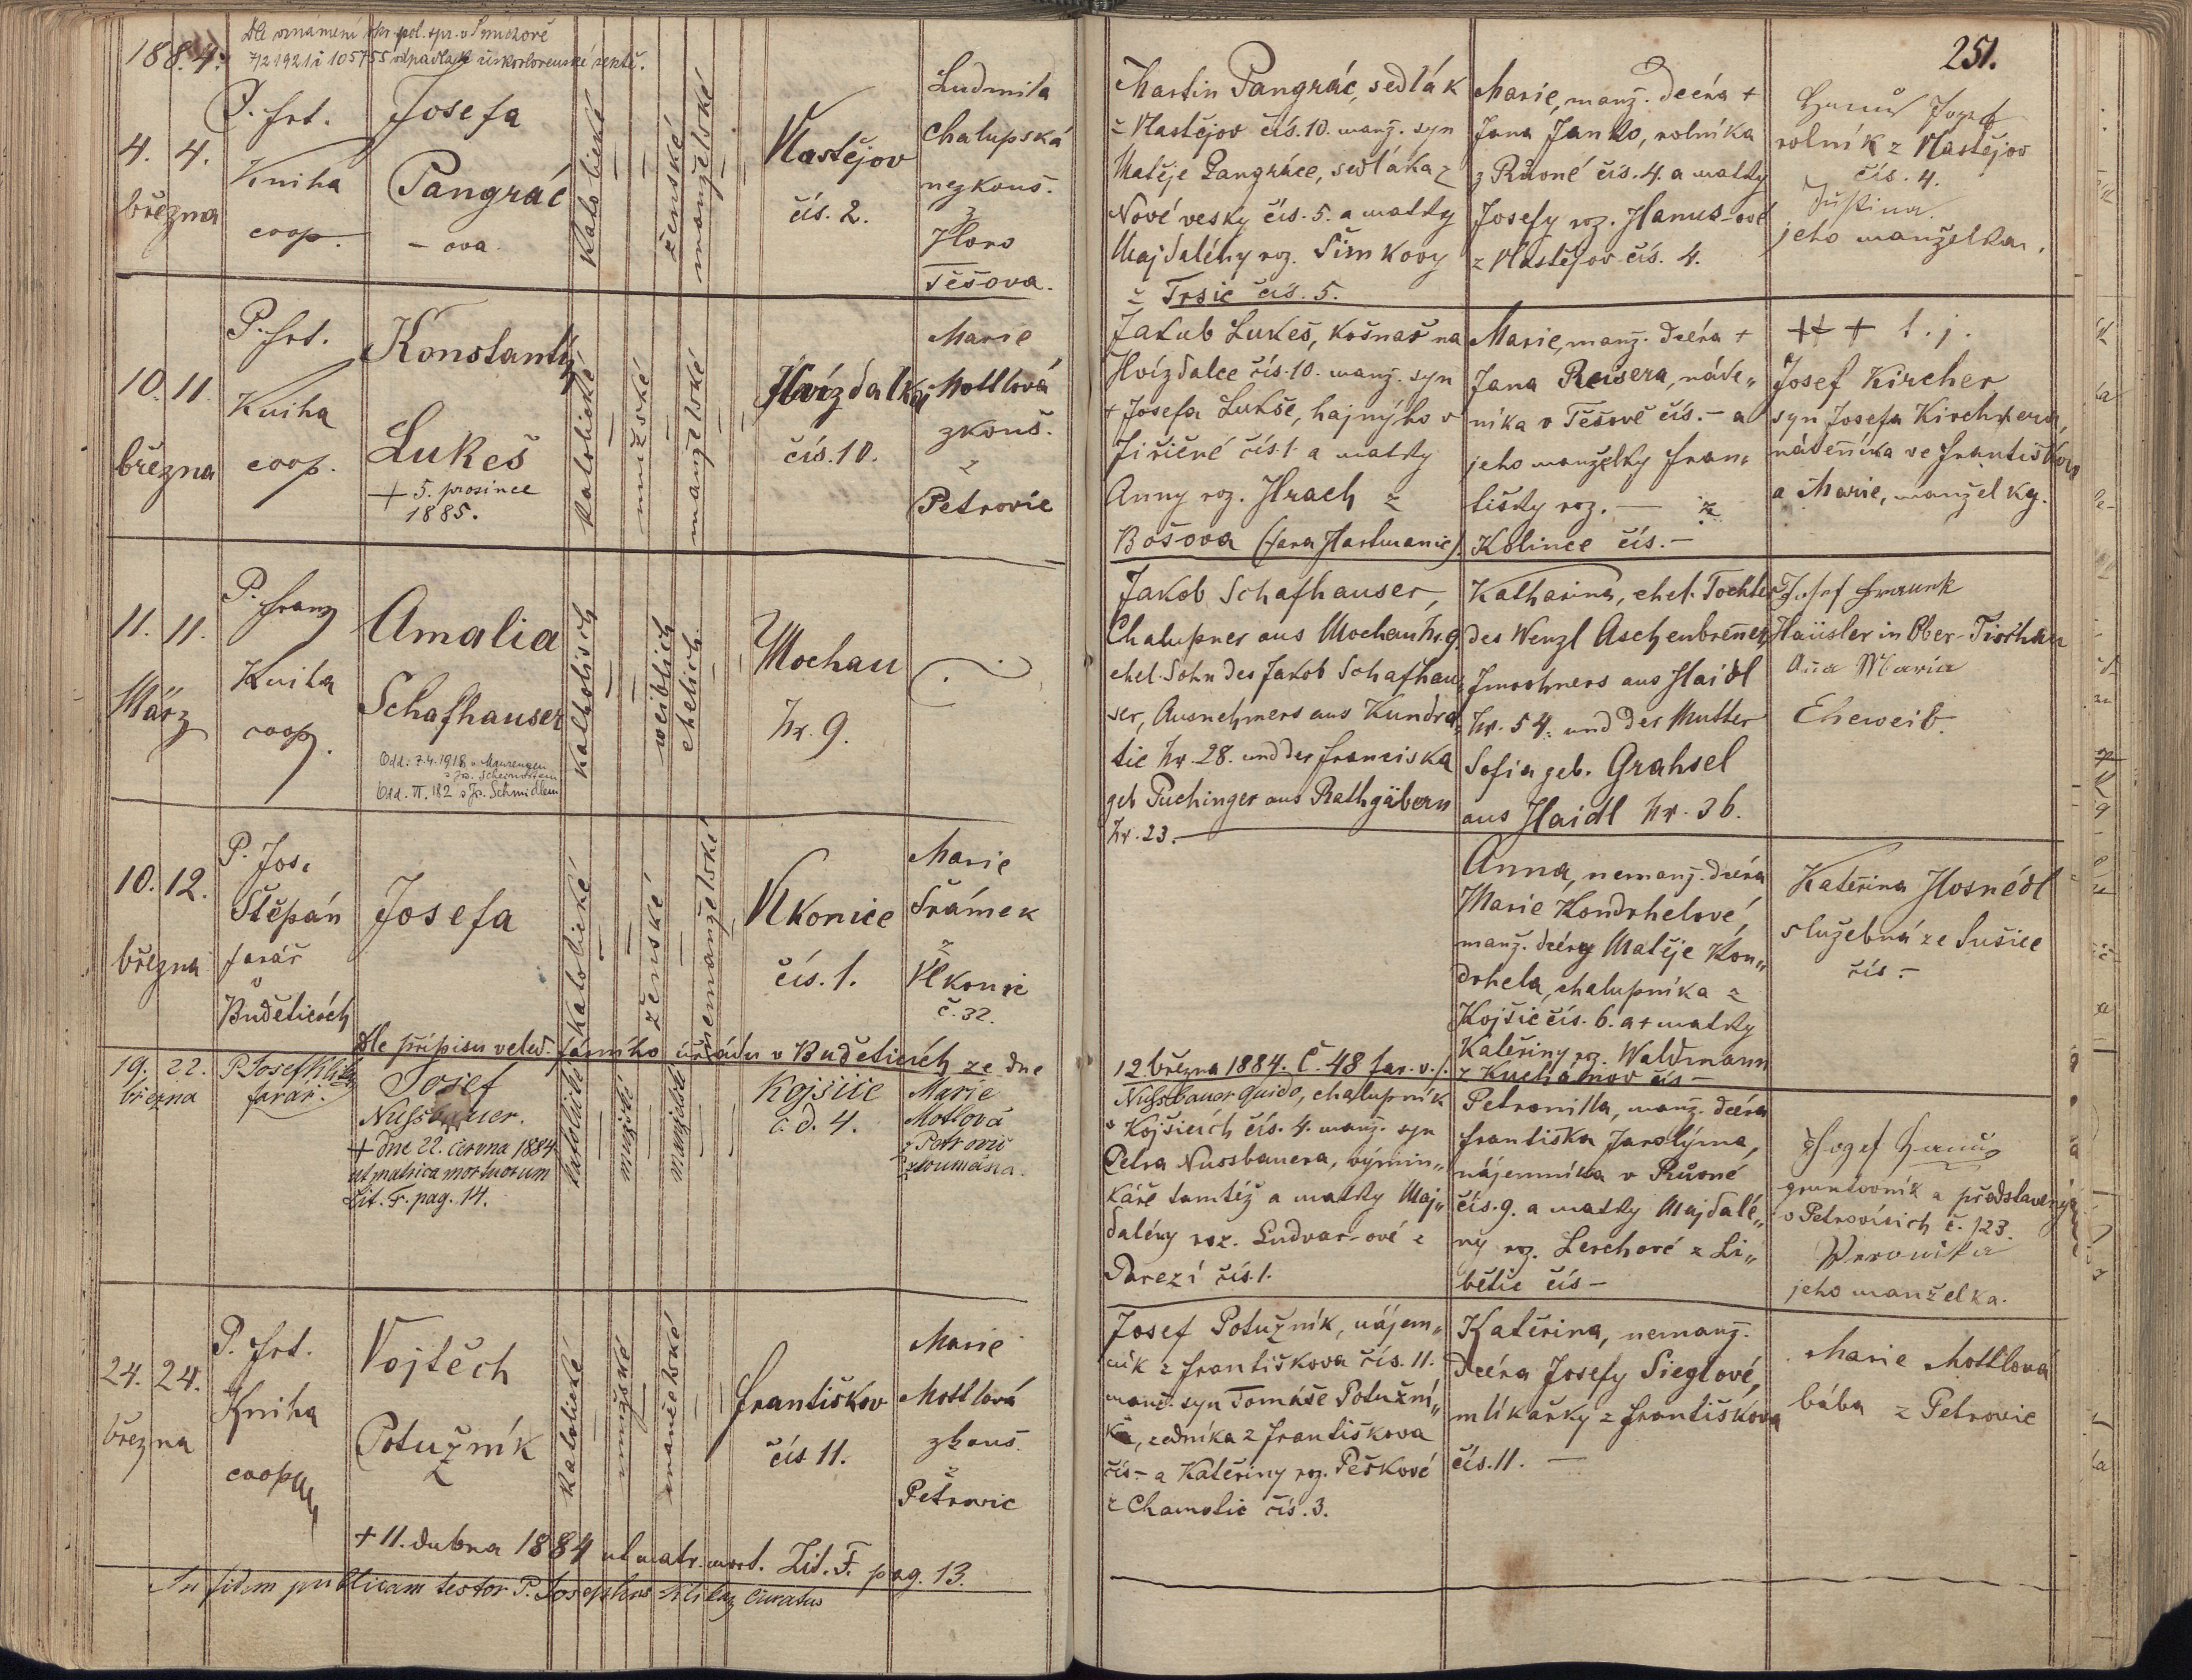 251.
1884.
Dle oznámení okr. pol. spr. v Smíchově
7/2 1921 č 105755 odpadla k československé
4. 4.
března
P. Frt.
Kniha
coop.
Josefa
Pangrác
- ova.
katolické
ženské
manželské
Vlastějov
čís. 2.
Ludmila
Chalupská
nezkouš.
z
Horo
Těšova.
Martin Pangrác, sedlák
z Vlastějov čís. 10. manž. syn
Matěje Pangráce, sedláka z
Nové vesky čís. 5. a matky
Majdalény roz. Šimkovy
z Trsic čís. 5.
Marie, manž. dcéra +
Jana Janko, rolníka
z Růsné čís. 4. a matky
Josefy roz. Hanus-ové
z Vlastějov čís. 4.
Hanuš Josef
rolník z Vlastějov
čís. 4.
Justina
jeho manželka.
10. 11.
března
P. Frt.
Kniha
coop.
Konstantin
Lukeš
+ 5. prosince
1885.
katolické
mužské
manželské
Hvízdalka
čís. 10.
Marie
Mottlová
zkouš.
z
Petrovic
Jakub Lukeš, košnař na
Hvízdalce čís. 10. manž. syn
+ Josefa Lukše, hajného v
Jiřičné čís. 1. a matky
Anny roz. Hrach z
Bošova (fara Hartmanic).
Marie, manž. dcéra +
Jana Reisera, náde„
níka v Těšově čís. – a
jeho manželky Fran„
tišky roz. — z
Kolince čís. –
+++ t. j.
Josef Kircher
syn Josefa Kirchera,
nádeníka ve Františkov
a Marie, manželky.
11. 11.
März
P. Franz
Kniha
coop.
Amalia
Schafhauser
Odd. 7.4.1918 v Maurenzen
Odd. II. 182 s Js. Schmidlem
katholisch
weiblich
ehelich.
Mochau
Nr. 9.
Jakob Schafhauser,
Chalupner aus Mochau Nr. 9.
ehel. Sohn des Jakob Schafhau„
ser, Ausnehmers aus Kundra„
tic Nr. 28. und der Franciska
geb Puchinger aus Rathgäbern
Nr. 23.
Katharina, ehel. Tochter
des Wenzl Aschenbrener,
Inwohners aus Haidl
Nr. 54. und der Mutter
Sofia geb. Grahsel
aus Haidl Nr. 36.
Josef
Häusler in Ober-
Ana Maria
Eheweib.
10. 12.
března
P. Jos.
Štěpán
farář
v
Buděticích
Josefa
katolické
ženské
nemanželské
Vlkonice
čís. 1.
Marie
Šrámek
z
Vlkonic
č. 32.
Anna, nemanž. dcéra
Marie Kondrhelové,
manž. dcéry Matěje Kon„
drhela, chalupníka z
Kojšic čís. 6. a + matky
Kateřiny roz. Waldmann
z Kuchánov čís –
Kateřina Hosnédl
služebná ze Sušice
čís –
Dle přípisu veled. farního úřadu v Budětících ze dne
12. března 1884. Č. 48 far. ú.
19. 22.
března
P. Josef
farář.
Josef
Nussbauer.
+ dne 22. června 1884
ut matrica mortuorum
Lit. F. pag. 14.
katolické
mužské
manželské
Kojšice
č.d. 4.
Marie
Motlová
z Petrovic
zkoumána.
Nussbauer Quido, chalupník
v Kojšicích čís. 4. manž. syn
Petra Nussbauera, výmin„
káře tamtéž a matky Maj„
dalény roz. Ludvar-ové z
Parezí čís. 1.
Petronilla, manž. dcéra
Františka Jarolýma,
nájemníka v Růsné
čís. 9. a matky Majdalé„
ny roz. Lerchové z Li„
bětic čís –
Josef Hanuš
gruntovník a představený
v Petrovicích č. 123.
Weronika
jeho manželka.
24. 24.
března
P. Frt.
Kniha
coop
Vojtěch
Potužník
katolické
mužské
manželské
Františkov
čís 11.
Marie
Mottlová
zkouš.
z
Petrovic
Josef Potužník, nájem„
ník z Františkova čís. 11.
manž. syn Tomáše Potužní„
ka, zedníka z Františkova
čís – a Kateřiny roz. Peškové
z Chamutic čís. 3.
Kateřina, nemanž.
dcéra Josefy Sieglové,
mlíkařky z Františkova
čís. 11. —
Marie Mottlová
bába z Petrovic
+ 11. dubna 1884 ut matr. mort. Lit. F. pag. 13.
In fidem publicam testor P. Josephus curatus